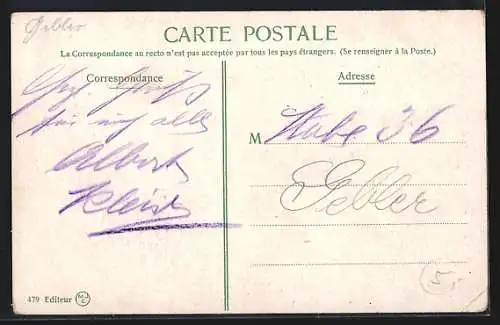 Gebler
CARTE POSTALE
La Correspondance au recto n'est pas acceptée par tous les pays étrangers. (Se renseigner à la Poste.)
Correspondance
Adresse
alles
Albert
M Stube 36
Gebler
479 Editeur
5,